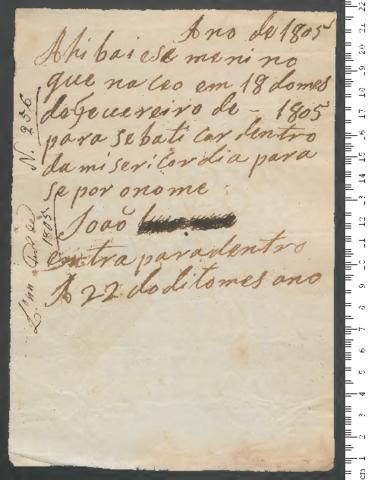 Ano de 1805
Ahi bai ese menino
que naceo em 18 do mes
de Feuereiro de - 1805
para se bati car dentro
da misericordia para
se por o nome
João
entra para dentro
A 22 do dito mes ano
N. 256
1805